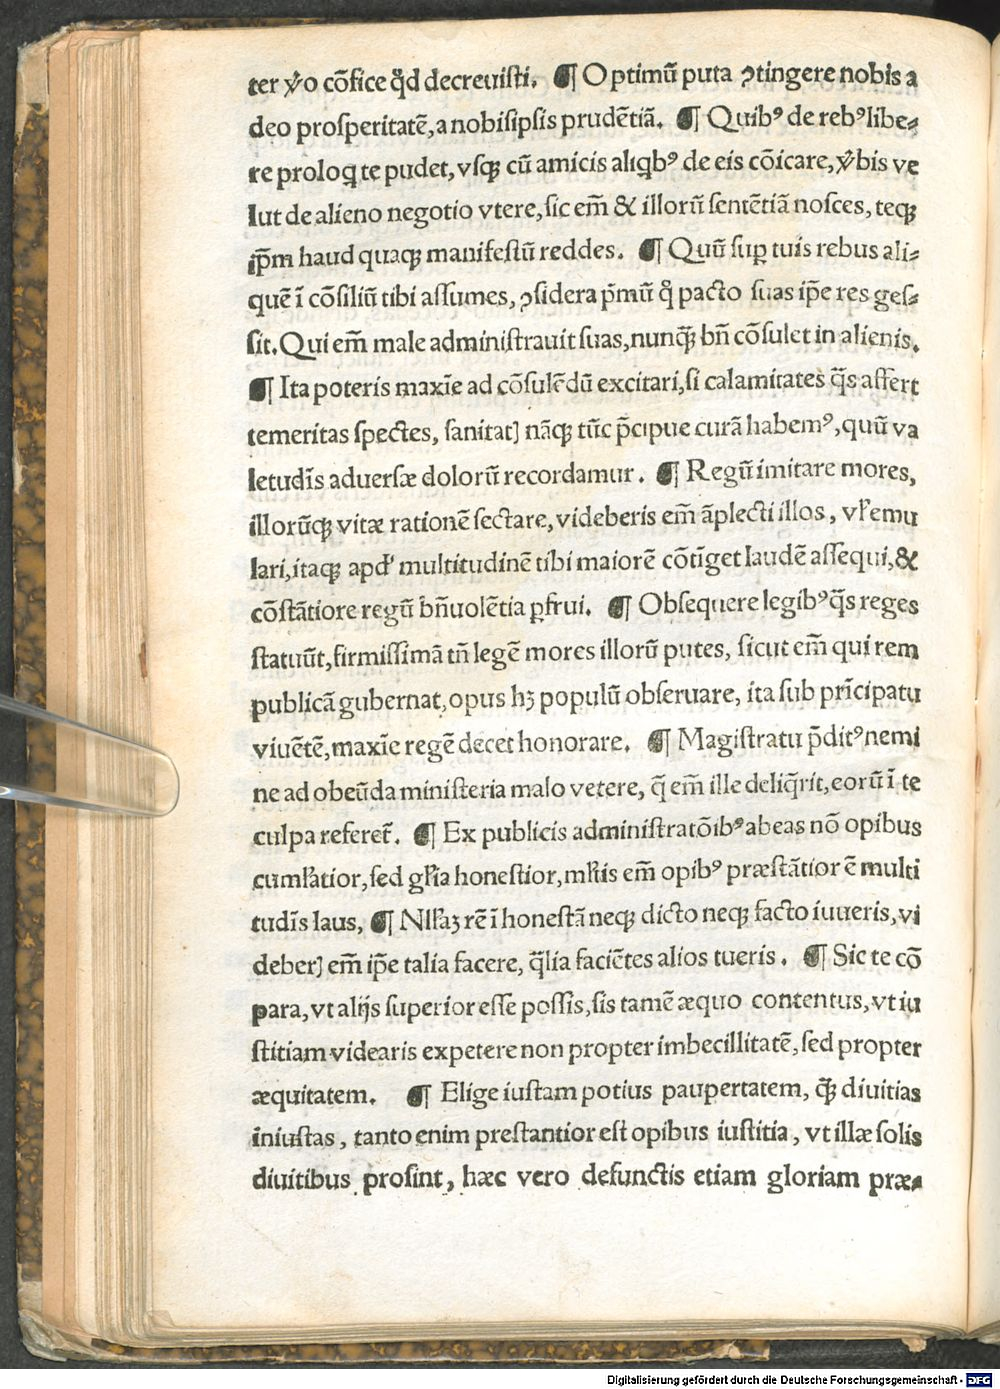 ter ꝟo cõfice qd̃ decreuiſti. ¶ Optimũ puta ꝯtingere nobis a
deo proſperitatẽ, a nobiſipſis prudẽtiã. ¶ Quibꝰ de rebꝰ libe⸗
re proloq̃ te pudet, vſqꝫ cũ amicis aliqbꝰ de eis cõicare, ꝟbis ve
lut de alieno negotio vtere, ſic em̃ & illorũ ſentẽtiã noſces, teqꝫ
ip̃m haud quaqꝫ manifeſtũ reddes. ¶ Quũ ſuꝑ tuis rebus ali⸗
quẽ ĩ cõſiliũ tibi aſſumes, ꝯſidera p̃mũ q̊ pacto ſuas ip̃e res geſ⸗
ſit. Qui em̃ male adminiſtrauit ſuas, nunqꝫ̃ bñ cõſulet in alienis.
¶ Ita poteris maxĩe ad cõſulẽdũ excitari, ſi calamitates q̃s affert
temeritas ſpectes, ſanitat] nãqꝫ tũc p̃cipue curã habemꝰ, quũ va
letudĩs aduerſæ dolorũ recordamur. ¶ Regũ imitare mores,
illorũqꝫ vitæ rationẽ ſectare, videberis em̃ ãplecti illos, vl̓ emu
lari, itaqꝫ apd̓ multitudinẽ tibi maiorẽ cõtĩget laudẽ aſſequi, &
cõſtãtiore regũ bñuolẽtia ꝑfrui. ¶ Obſequere legibꝰ q̃s reges
ſtatuũt, firmiſſimã tñ legẽ mores illorũ putes, ſicut em̃ qui rem
publicã gubernat, opus hꝫ populũ obſeruare, ita ſub prĩcipatu
viuẽtẽ, maxĩe regẽ decet honorare. ¶ Magiſtratu p̃ditꝰ nemi
ne ad obeũda miniſteria malo vetere, q̃ em̃ ille deliq̃rit, eorũ ĩ te
culpa referet̃. ¶ Ex publicis adminiſtratõibꝰ abeas nõ opibus
cuml̓atior, ſed gl̓ia honeſtior, ml̓tis em̃ opibꝰ præſtãtior ẽ multi
tudĩs laus, ¶ Nll̓aꝫ rẽ ĩ honeſtã neqꝫ dicto neqꝫ facto iuueris, vi
deber] em̃ ip̃e talia facere, q̃lia faciẽtes alios tueris. ¶ Sic te cõ
para, vt alijs ſuperior eſſe poſſis, ſis tamẽ æquo contentus, vt iu
ſtitiam videaris expetere non propter imbecillitatẽ, ſed propter
æquitatem. ¶ Elige iuſtam potius paupertatem, qꝫ̃ diuitias
iniuſtas, tanto enim preſtantior eſt opibus iuſtitia, vt illæ ſolis
diuitibus proſint, hæc vero defunctis etiam gloriam præ⸗
Digitalisierung gefördert durch die Deutsche Forschungsgemeinschaft - DFG